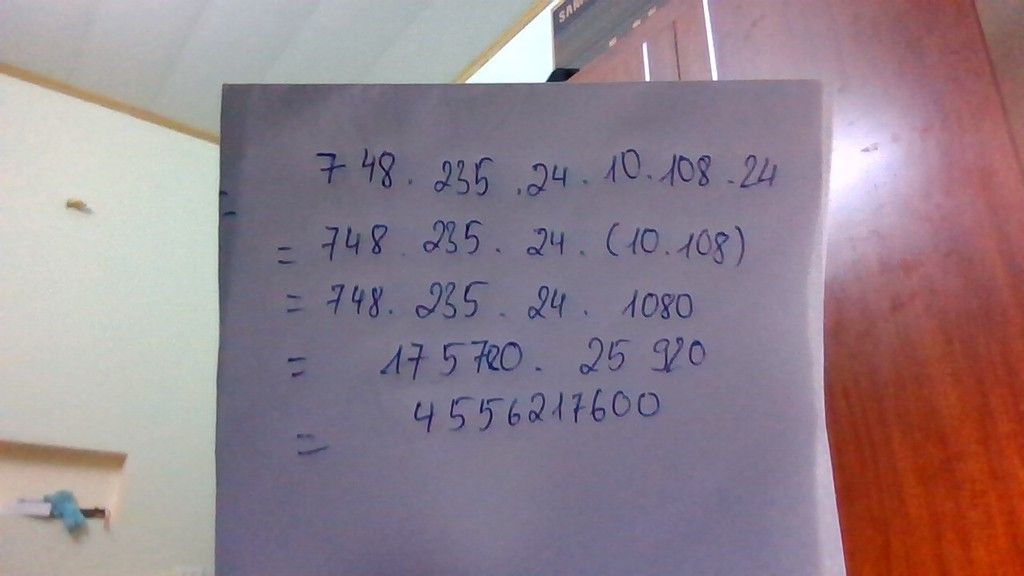 748 . 235 . 24 . 10 . 108 . 24
=
= 748 . 235 . 24 . (10 . 108)
= 748 . 235 . 24 . 1080
= 175780 . 25 920
= 4556217600